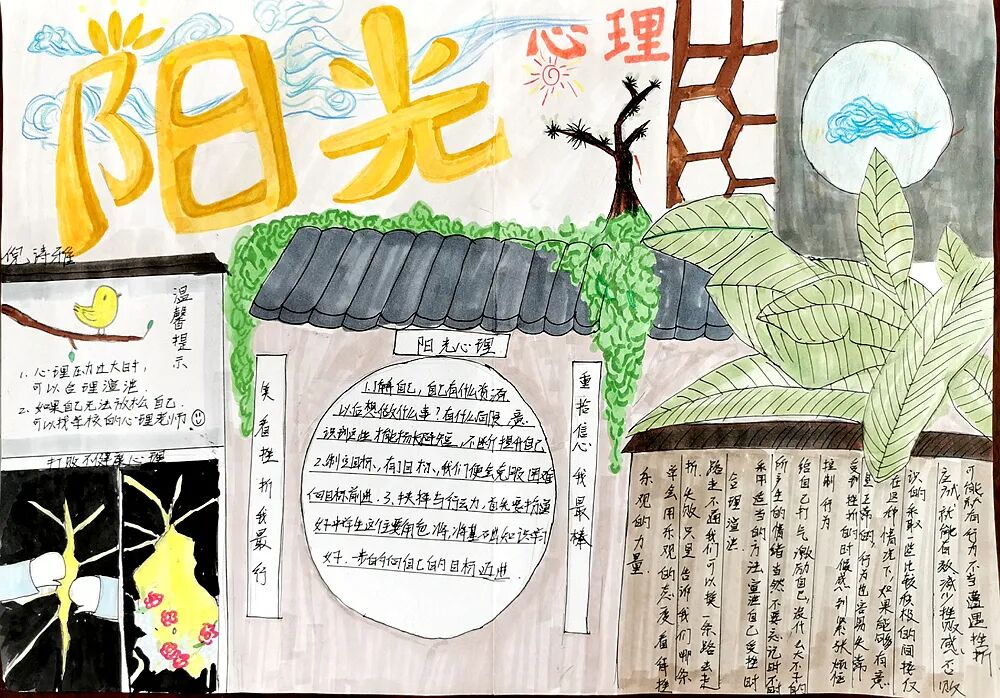 阳光
心理
倪诗雅
温馨提示
1.心理压力过大时,
可以合理渲泄.
2.如果自己无法放松自己
可以找学校的心理老师!
打败不健康心理
阳光心理
笑看挫折我最行
重拾信心我最棒
1.了解自己,自己有什么资源
以后想做什么事?有什么局限,意
识到这些才能扬长避短,不断提升自己
2.制定目标,有了目标,我们便会克服困难
向目标前进.3.抉择与行动力,首先要
好,一步的向自己的目标迈进.
可能会有行为不当遭遇挫折
应试就能有效减少挫败感,适败
识的采取一些比较积极的间接仅
在这种情况下,如果能够有意
受到挫折的时候感到紧张烦恼
控制行为
给自己打气激励自己没什么大不了的
所产生的情绪当然不要忘记时不时
采用适当的方法宣泄自己受挫时
合理渲泄
路走不通我们可以换一条路去走
折、失败只是告诉我们哪条
学会用乐观的态度看待挫
乐观的力量